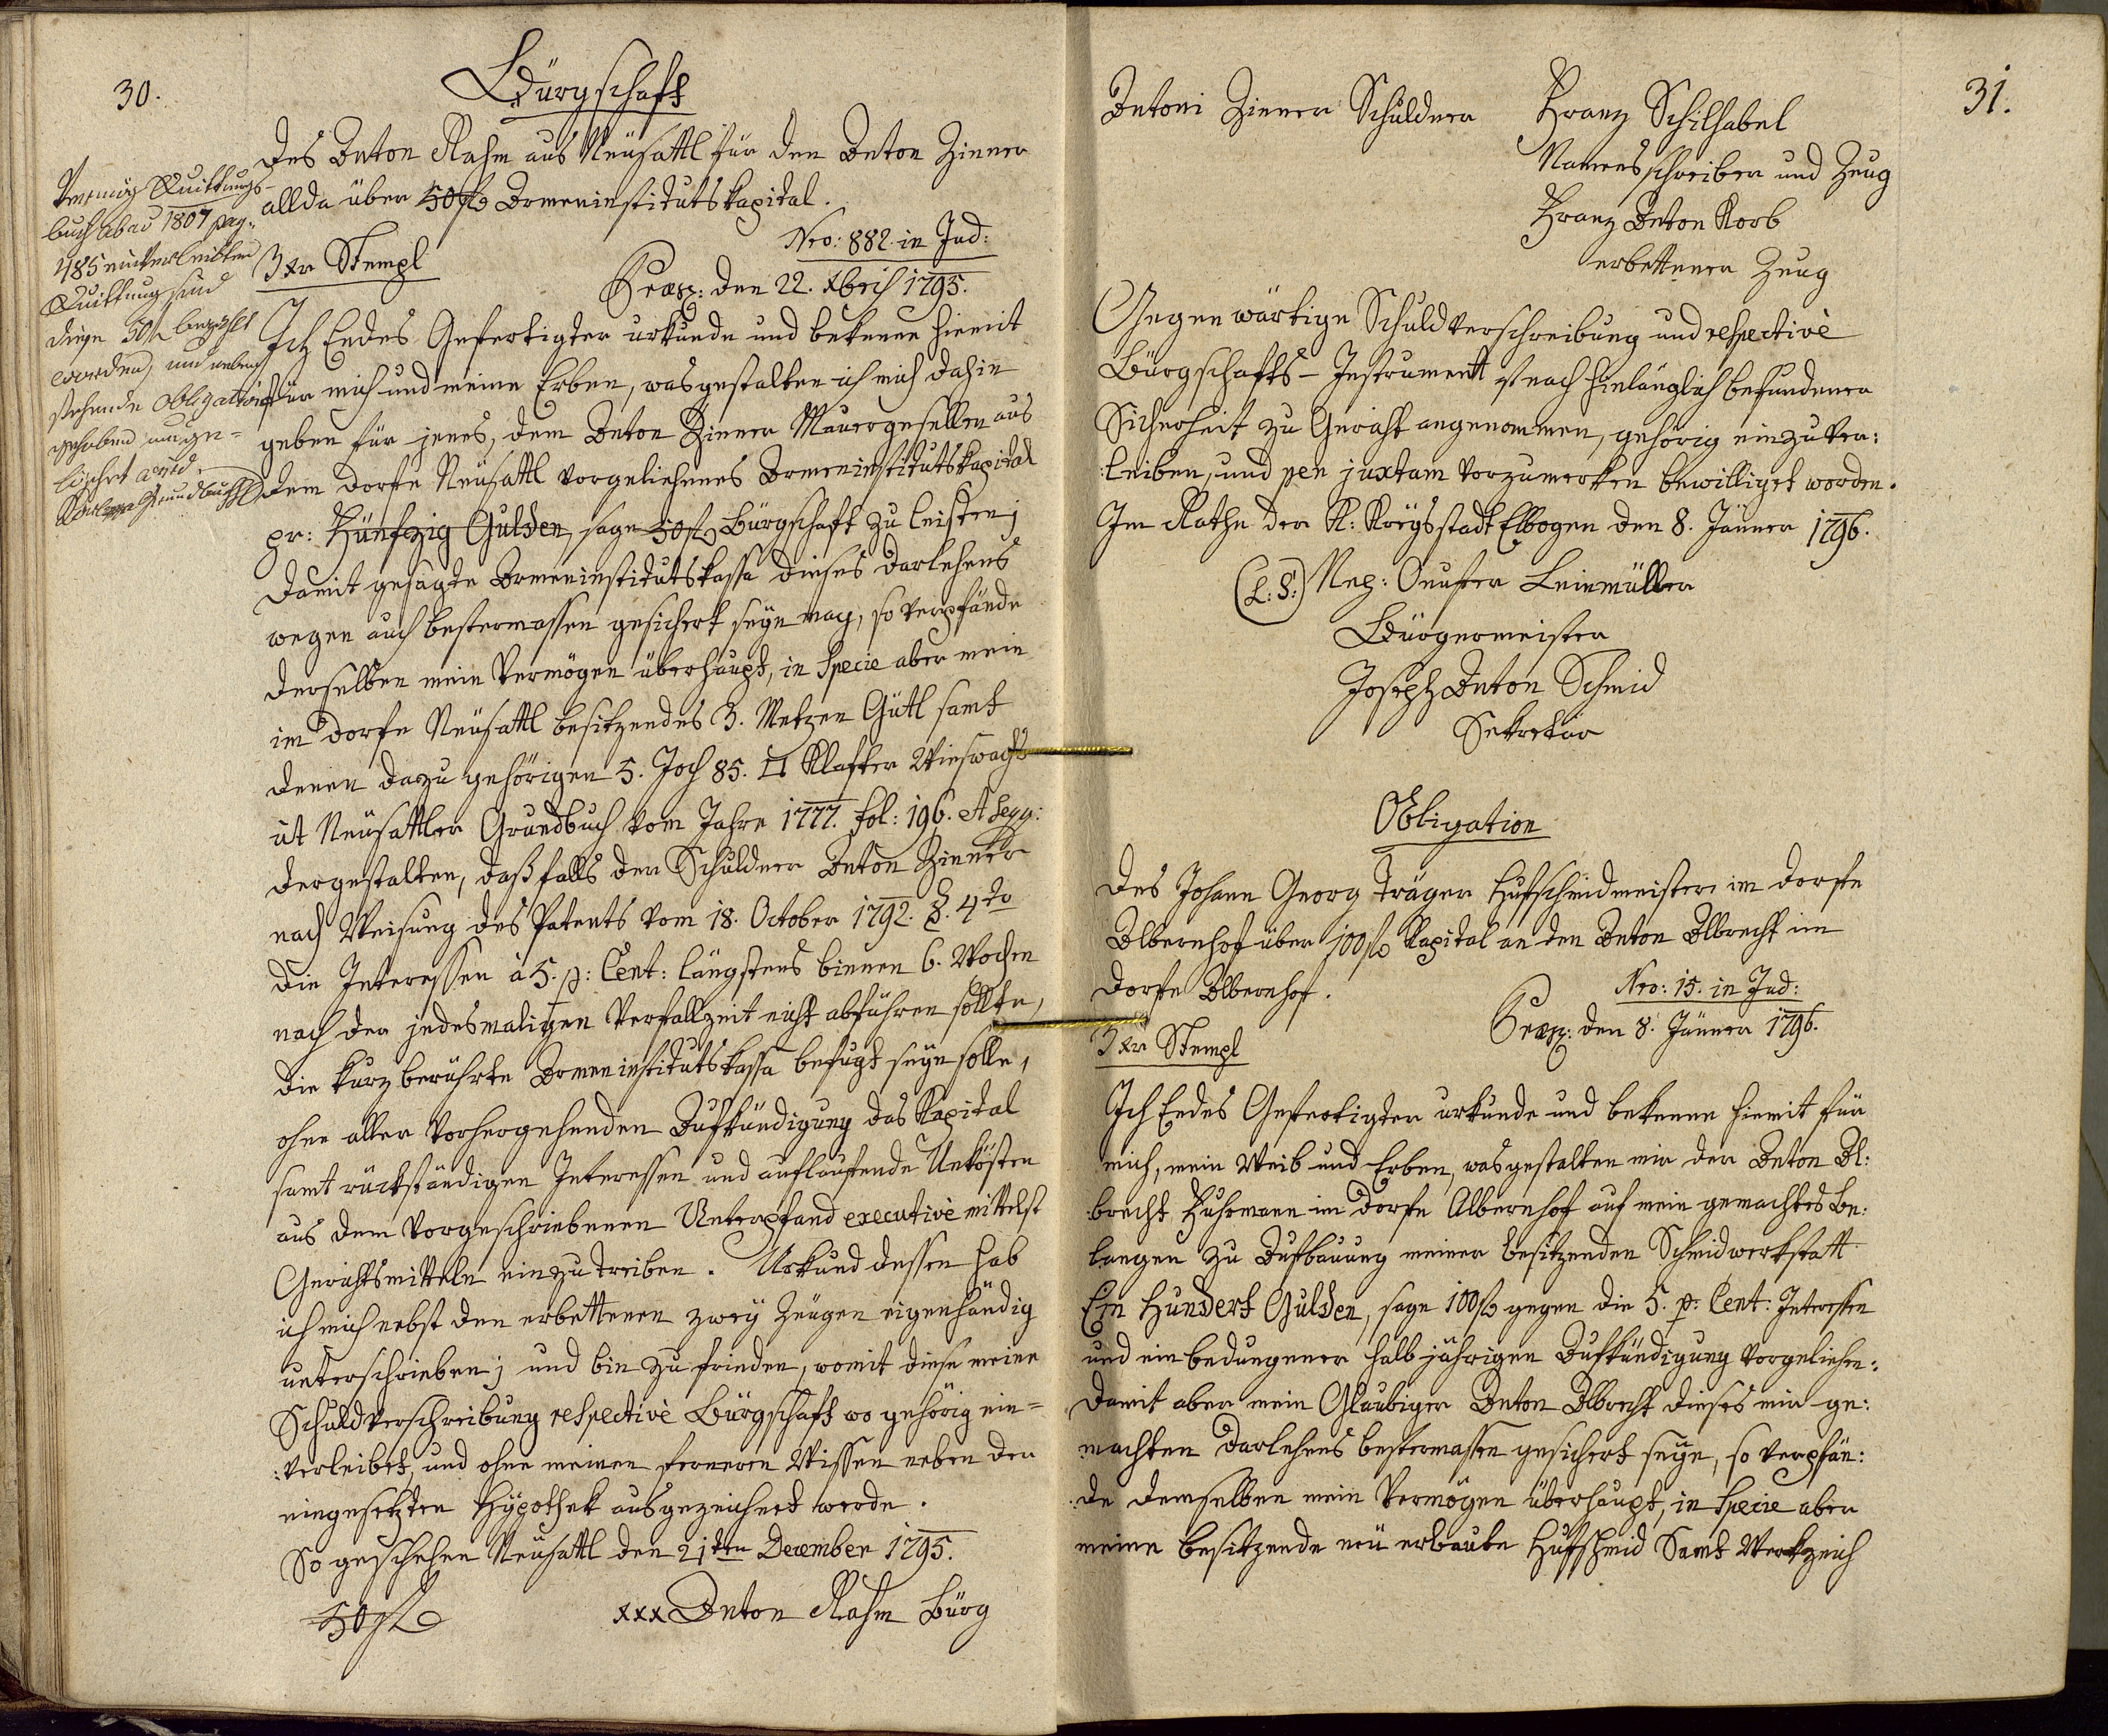 30.
Bürgschaft
des Anton Rahm aus Neüsattl für den Anton Zinner
allda über 50 fl Armeninstitutskapital.
Nro: 882 in Jud:
3 xr Stempl
Præs: den 22. Xbris 1795.
Vermög Quittungs-
buch ab ao 1807 pag:
485 einverleibten
Quittung sind
diese 50 fl bezahlt
worden, und neben
stehende Obligation
gehoben und ge=
löschet word.
Ich Endes Gefertigter urkunde und bekenne hiemit
für mich und meine Erben, was gestalten ich mich dahin
geben für jenes, dem Anton Zinner Mauergesellen aus
dem Dorfe Neüsattl vorgeliehenes Armeninstitutskapital
pr: Fünfzig Gulden, sage 50 fl Bürgschaft zu leisten;
Damit gesagte Armeninstitutskassa dieses Darlehens
wegen auch bestermassen gesichert seyn mag, so verpfände
derselben mein Vermögen überhaupt, in Specie aber mein
im Dorfe Neüsattl besitzendes 3. Metzen Gütl samt
denen dazu gehörigen 5. Joch 85. □ Klafter Wieswachs
ut Neüsattler Grundbuch vom Jahre 1777. fol: 196. et seqq:
dergestalten, daß falls der Schuldner Anton Zinner
nach Weisung des Patents vom 18. October 1792. §. 4to
die Interessen à 5. p: Cent: längstens binnen 6. Wochen
nach der jedesmaligen Verfallzeit nicht abführen sollte,
die kurz berührte Armeninstitutskassa befugt seyn solle,
ohne aller vorhergehenden Aufkündigung das Kapital
samt rückständigen Interessen und auflaufende Unkösten
aus dem vorgeschriebenen Unterpfand executivè mittelst
Gerichtsmitteln einzutreiben. Urkund dessen hab
ich mich nebst den erbettenen zwey Zeügen eigenhändig
unterschrieben; und bin zufrieden, womit diese meine
Schuldverschreibung respectivè Bürgschaft wo gehörig ein=
:verleibet, und ohne meinen ferneren Wissen neben der
eingesetzten Hÿpothek ausgezeichnet werde.
So geschehen Neüsattl den 21ten December 1795.
50 fl
xxx Anton Rahm Bürg
31.
Antoni Zinner Schuldner
Franz Schilhabel
Namensschreiber und Zeug
Franz Anton Korb
erbettener Zeug
Gegenwärtige Schuldverschreibung und respectivè
Bürgschafts-Instrument ist nach hinlänglich befundener
Sicherheit zu Gericht angenommen, gehörig einzuver:
:leiben, und per juxtam vorzumerken bewilliget worden.
Im Rathe der K: Kreÿsstadt Elbogen den 8. Jänner 1796.
(L: S:) Nep: Leinmüller
Bürgermeister
Joseph Anton Schmid
Sekretär
Obligation
des Johann Georg Träger Hufschmidmeister im Dorfe
Albernhof über 100 fl Kapital an den Anton Albrecht im
Dorfe Albernhof.
Nro: 15. in Jud:
Præs: den 8. Jänner 1796.
3 xr Stempl
Ich Endes Gefertigter urkunde und bekenne hiemit für
mich, mein Weib und Erben, was gestalten mir der Anton Al:
:brecht Fuhrmann im Dorfe Albernhof auf mein gemachtes Be:
langen zu Aufbauung meiner besitzenden Schmidwerkstatt
Ein Hundert Gulden, sage 100 fl gegen die 5. p: Cent: Interessen
und ein bedungener halb jährigen Aufkündigung vorgeliehen:
Damit aber mein Glaubiger Anton Albrecht dieses mir ge:
machten Darlehens bestermassen gesichert seÿe, so verpfän:
:de demselben mein Vermögen überhaupt, in Specie aber
meine besitzende neü erbaute Hufschmid Samt Werkzeich